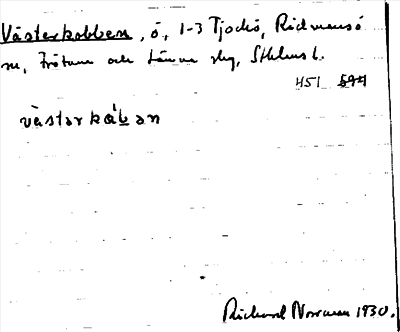 Västerkobben, ö, 1-3 Tjockö, Rådmansö
sn, Frötuna och Länna skg, Sthlms l.
451 594
västərkåb̀ən
Rickard Norrman 1930.